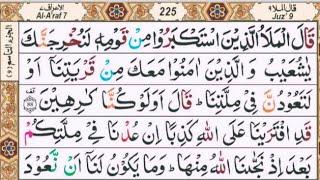 الاعراف ٧ 225 قال الملا ٩
Al-A'raf 7 Juz' 9
قَالَ الْمَلَاُ الَّذِيْنَ اسْتَكْبَرُوْا مِنْ قَوْمِهٖ لَنُخْرِجَنَّكَ
يٰشُعَيْبُ وَ الَّذِيْنَ اٰمَنُوْا مَعَكَ مِنْ قَرْيَتِنَاۤ اَوْ
لَتَعُوْدُنَّ فِيْ مِلَّتِنَا ؕ قَالَ اَوَلَوْ كُنَّا كٰرِهِيْنَ ۟
قَدِ افْتَرَيْنَا عَلَى اللّٰهِ كَذِبًا اِنْ عُدْنَا فِيْ مِلَّتِكُمْ
بَعْدَ اِذْ نَجّٰىنَا اللّٰهُ مِنْهَا ؕ وَمَا يَكُوْنُ لَنَاۤ اَنْ نَّعُوْدَ